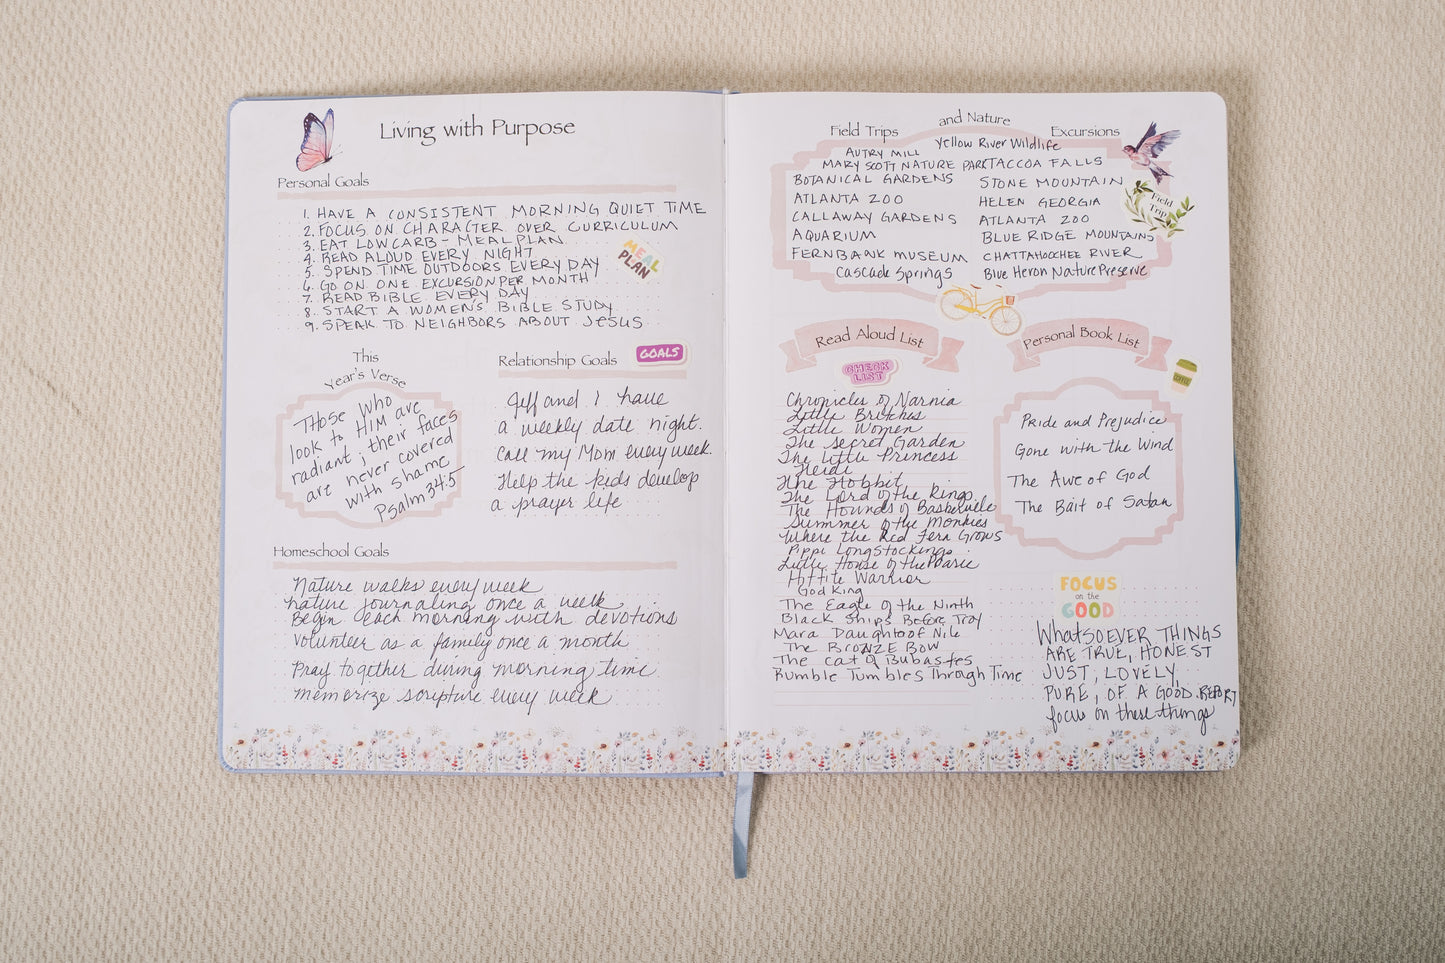 Living with Purpose
Personal Goals
1. HAVE A CONSISTENT MORNING QUIET TIME
2. FOCUS ON CHARACTER OVER CURRICULUM
3. EAT LOW CARB - MEAL PLAN
4. READ ALOUD EVERY NIGHT
5. SPEND TIME OUTDOORS EVERY DAY
6. GO ON ONE EXCURSION PER MONTH
7. READ BIBLE EVERY DAY
8. START A WOMEN'S BIBLE STUDY
9. SPEAK TO NEIGHBORS ABOUT JESUS
MEAL
PLAN
This
Year's Verse
THOSE WHO
look to HIM are
radiant; their faces
are never covered
with shame
Psalm 34:5
Relationship Goals
GOALS
Jeff and I have
a weekly date night.
Call my Mom every week.
Help the kids develop
a prayer life
Homeschool Goals
Nature walks every week
nature journaling once a week
Begin each morning with devotions
Volunteer as a family once a month
Pray together during morning time
memorize scripture every week
Field Trips
and Nature
Excursions
AUTRY MILL
Yellow River Wildlife
MARY SCOTT NATURE PARK
TACCOA FALLS
BOTANICAL GARDENS
ATLANTA ZOO
CALLAWAY GARDENS
AQUARIUM
FERNBANK MUSEUM
Cascade Springs
STONE MOUNTAIN
HELEN GEORGIA
ATLANTA ZOO
BLUE RIDGE MOUNTAINS
CHATTAHOOCHEE RIVER
Blue Heron Nature Preserve
Field
Trip
Read Aloud List
CHECK
LIST
Chronicles of Narnia
Little Britches
Little Women
The Secret Garden
The Little Princess
Heidi
The Hobbit
The Lord of the Rings
The Hounds of Baskerville
Summer of the Monkies
Where the Red Fern Grows
Pippi Longstockings
Little House of the Prarie
Hittite Warrior
God King
The Eagle of the Ninth
Black Ships Before Troy
Mara Daughter of Nile
The Bronze Bow
The Cat of Bubastes
Rumble Tumbles Through Time
Personal Book List
Pride and Prejudice
Gone with the Wind
The Awe of God
The Bait of Satan
FOCUS
on the
GOOD
WHATSOEVER THINGS
ARE TRUE, HONEST
JUST, LOVELY,
PURE, OF A GOOD REPORT
focus on these things